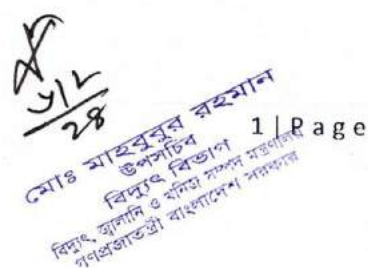 মোঃ মাহবুবুর রহমান
উপসচিব
বিদ্যুৎ বিভাগ
বিদ্যুৎ, জ্বালানি ও খনিজ সম্পদ মন্ত্রণালয়
গণপ্রজাতন্ত্রী বাংলাদেশ সরকার
1 | P a g e